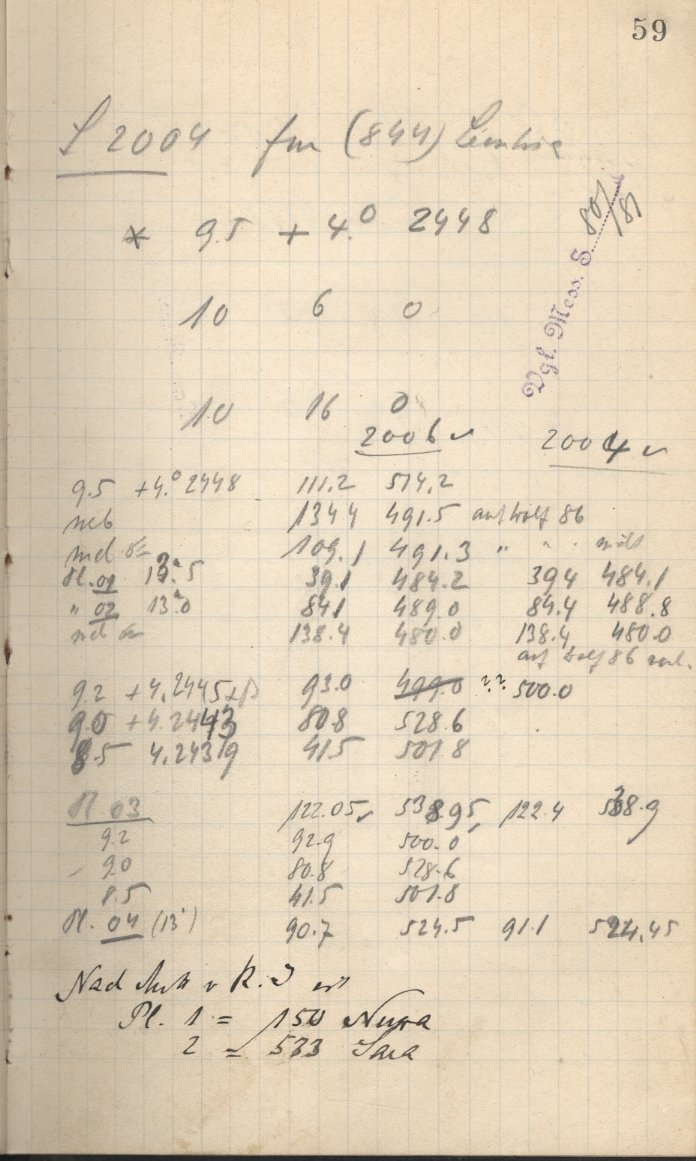 59
2004 für (844) Leontina
* 9.5 + 4.° 2448
Vgl. Mess. S. 80/81
10 6 0
10 16 0
2006 2004
9.5 +4.° 2448 111.2 514.2
neb 134.4 491.5 auf Wolf 86
109.1 491.3 " " nicht
Pl. 01 13.5 39.1 484.2 39.4 484.1
" 02 13.0 84.1 489.0 84.4 488.8
138.4 480.0 138.4 480.0
auf Wolf 86
9.2 +4.2445 93.0 499.0 ?.? 500.0
9.0 +4.2443 80.8 528.6
8.5 4.2439 41.5 501.8
Pl. 03 122.05 538.95 122.4 538.9
9.2 92.9 500.0
9.0 80.8 528.6
8.5 41.5 501.8
Pl. 04 (13) 90.7 524.5 91.1 524.45
Nach Mitt v R. I ist
Pl. 1 = 150 Nuwa
2 = 533 Sara